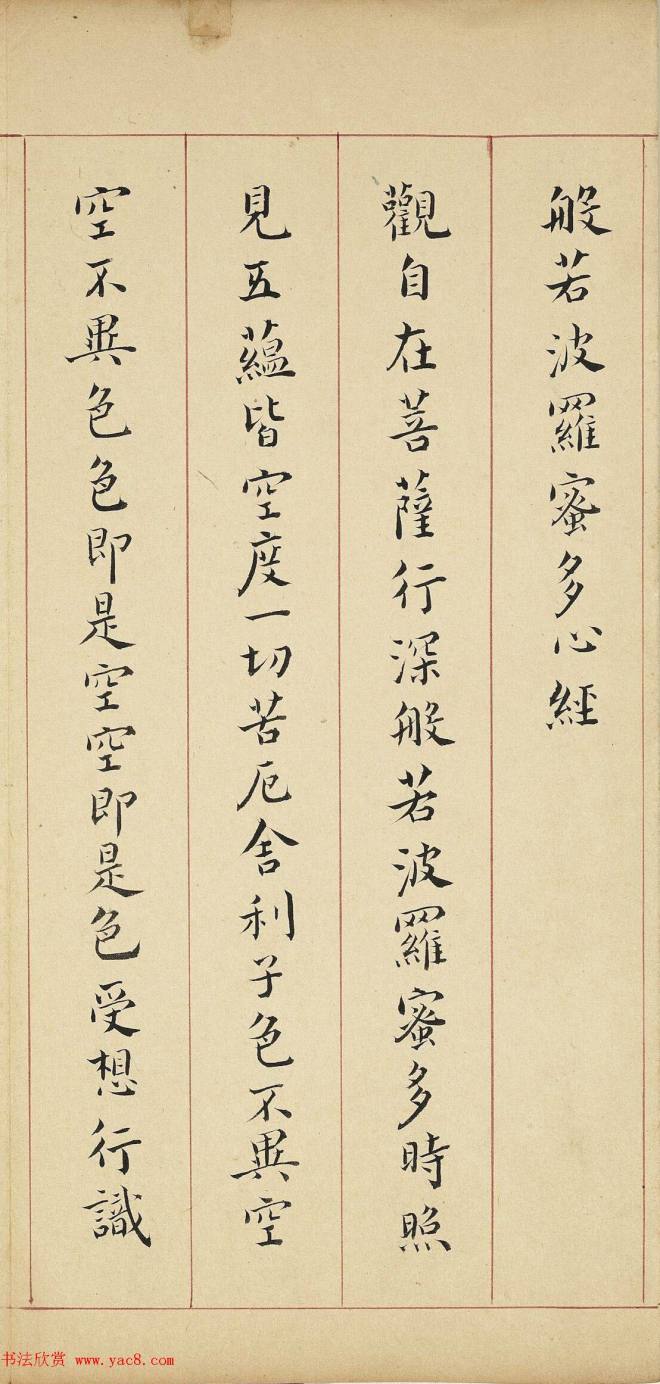 般若波羅蜜多心經
觀自在菩薩行深般若波羅蜜多時照
見五蘊皆空度一切苦厄舍利子色不異空
空不異色色即是空空即是色受想行識
书法欣赏 www.yac8.com